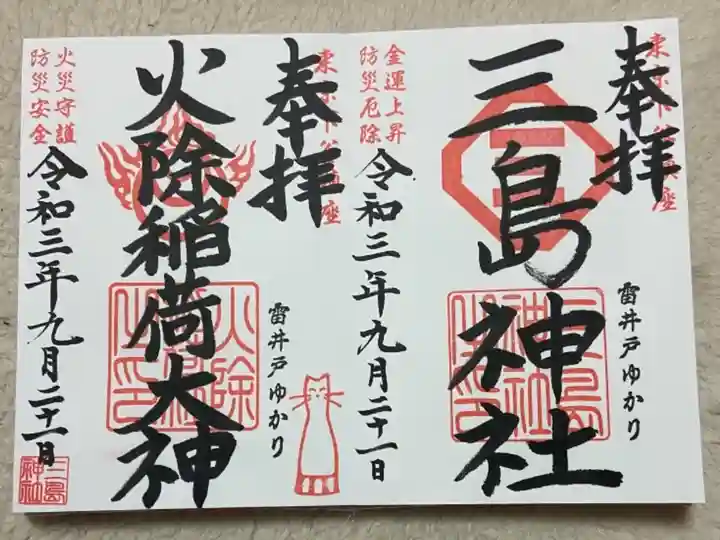 奉拝
東京下谷鎮座
三島神社
雷井戸ゆかり
金運上昇
防災厄除
令和三年九月二十一日
奉拝
東京下谷鎮座
火除稲荷大神
雷井戸ゆかり
火災守護
防災安全
令和三年九月二十一日
三島神社